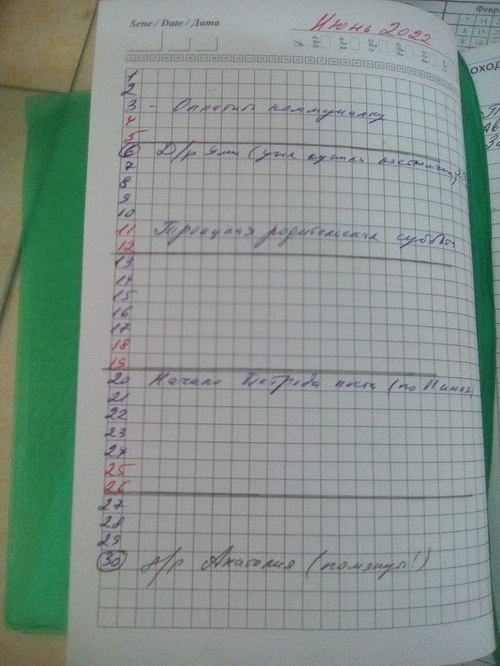 Sene / Date / Дата
Июнь 2022
1
2
3 - Оплатить коммуналку
4
5
6 Д/р
7
8
9
10
11 Троицкая родительская суббота
12
13
14
15
16
17
18
19
20 Начало Петрова поста (по
21
22
23
24
25
26
27
28
29
30 д/р Анатолия (помянуть!)